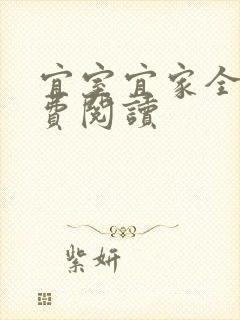 宜室宜家全
費閱讀
紫妍